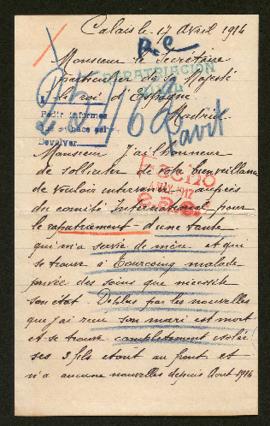 Calais le 17 Avril 1914
R.C
Monsieur le Secrétaire
particulier de sa Majesté
REPATRIACION
le roi d'Espagne
Madrid
Pedir informes
Devolver
Monsieur J'ai l'honneur
de solliciter de votre bienveillance
de vouloir intervenir auprès
du comité International pour
le rapatriement d'une tante
qui m'a servie de mère et qui
se trouve à Tourcoing malade
privée des soins que nécessite
son état. De plus par les nouvelles
que j'ai reçu son mari est mort
et se trouve complètement isolée
ses 3 fils étant au front et
n'a aucune nouvelles depuis Aout 1914